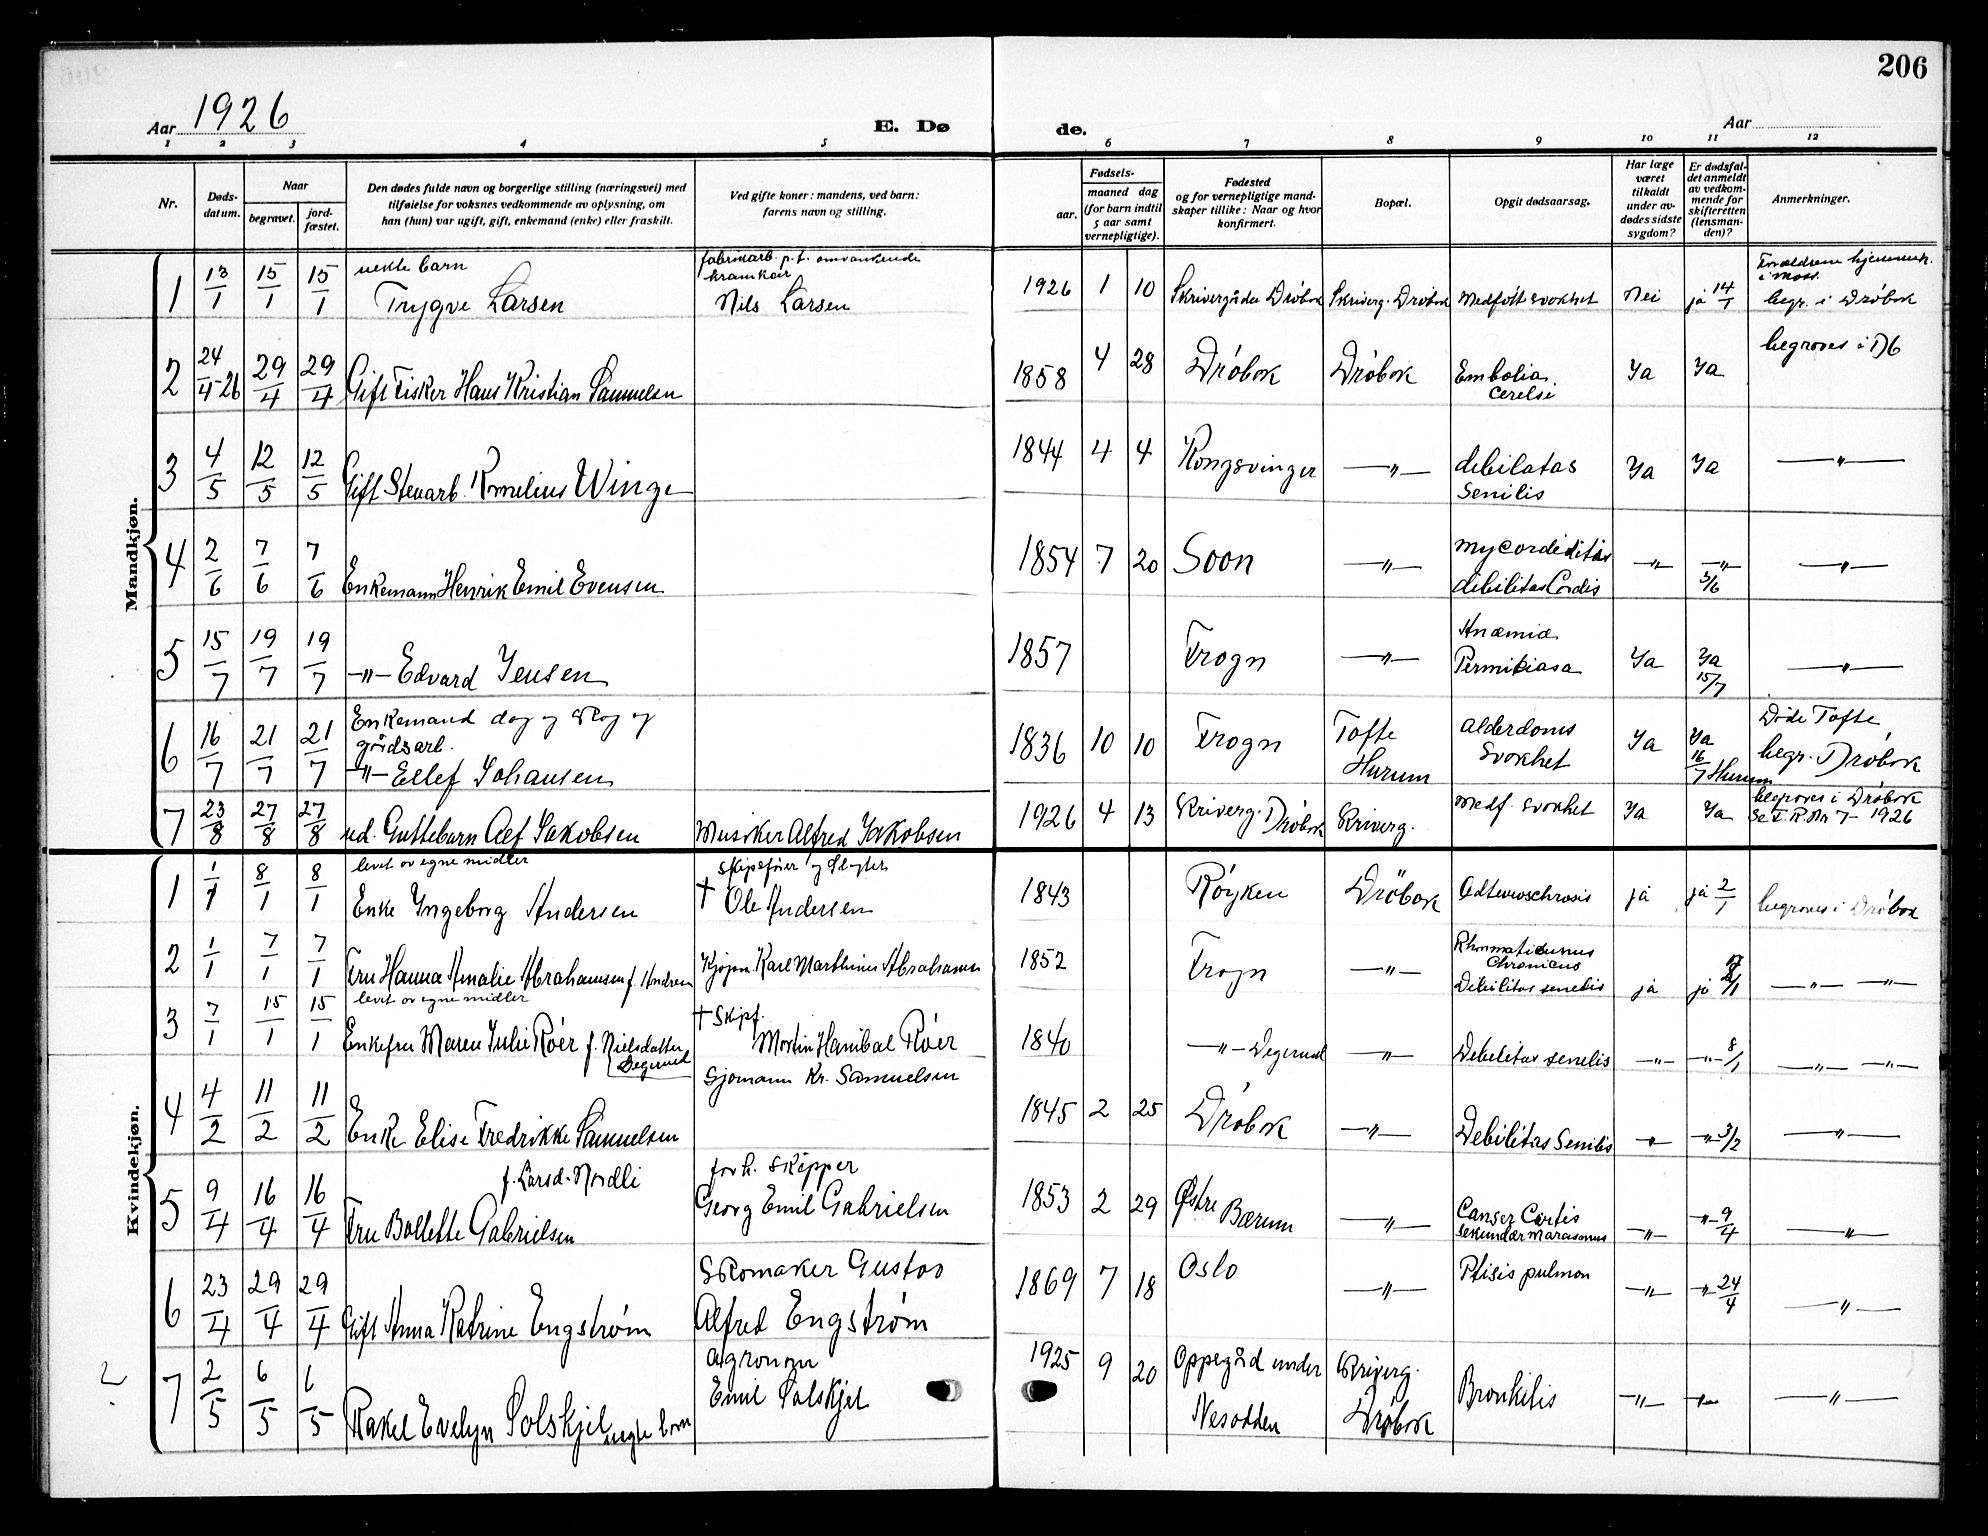 206
Aar 1926
E. Dø
de.
Aar
1 2 3 4 5 6 7 8 9 10 11 12
Nr.
Døds-
datum.
Naar
begravet.
jord-
fæstet.
Den dødes fulde navn og borgerlige stilling (næringsvei) med
tilføielse for voksnes vedkommende av oplysning, om
han (hun) var ugift, gift, enkemand (enke) eller fraskilt.
Ved gifte koner: mandens, ved barn:
farens navn og stilling.
Fødsels-
aar.
maaned dag
(for barn indtil
5 aar samt
vernepligtige).
Fødested
og for vernepligtige mand-
skaper tillike: Naar og hvor
konfirmert.
Bopæl.
Opgit dødsaarsag.
Har læge
været
tilkaldt
under av-
dødes sidste
sygdom?
Er dødsfal-
det anmeldt
av vedkom-
mende for
skifteretten
(lensman-
den)?
Anmerkninger.
Mandkjøn.
1 13/1 15/1 15/1 uekte barn
Trygve Larsen
fabrikarb. p.t. omvankende
Nils Larsen
1926 1 10 Skrivergården Drøbak Skriverg. Drøbak Medfødt svakhet Nei ja 14/1
Forældrene hjemmeh.
i Moss.
begr. i Drøbak
2 24/4-26 29/4 29/4 Gift Fisker Hans Kristian Samuelsen
1858 4 28 Drøbak Drøbak Embolia
Ja Ja begraves i
3 4/5 12/5 12/5 Gift Stenarb. Kornelius Winge
1844 4 4 Kongsvinger —"— debilatas
Senilis Ja Ja —"—
4 2/6 7/6 7/6 Enkemann Henrik Emil Evensen
1854 7 20 Soon —"— mycordeditas
debilitas Cordis —"— —"— 3/6 —"—
5 15/7 19/7 19/7 —"— Edvard Jensen
1857 Frogn —"— Anæmia
Ja Ja 15/7 —"—
6 16/7 21/7 21/7 Enkemand dag og
gårdsarb.
—"— Ellef Johansen
1836 10 10 Frogn Tofte
Hurum
Alderdoms
Svakhet Ja Ja 16/7 Hurum
Døde Tofte
begr. Drøbak
7 23/8 27/8 27/8 ud. Guttebarn Alf Jakobsen Musiker Alfred Jakobsen
1926 4 13 Skriverg. Drøbak Skriverg. Medf. svakhet Ja Ja
begraves i Drøbak
Se I. R. Nr 7 - 1926
Kvindekjøn.
1 1/1 8/1 8/1 levet av egne midler
Enke Ingeborg Andersen
† Ole Andersen
1843 Røyken Drøbak ja ja 2/1 begraves i Drøbak
2 1/1 7/1 7/1 Fru Hanna Amalie Abrahamsen f. Andresen
Kjøpm. Karl Marthinius Abrahamsen
1852 Frogn —"—
Chronicus
Debilitas senelis ja ja —"— —"—
3 7/1 15/1 15/1 levet av egne midler
Enkefru Maren Julie Røer f. Nielsdatter
Degerud
† Skipf.
Martin Hanibal Røer
1840 —"— Degerud —"— Debelitas senelis —"— —"— 8/1 —"— —"—
4 4/2 11/2 11/2 Enke Elise Fredrikke Samuelsen
Sjømann Kr. Samuelsen
1845 2 25 Drøbak —"— Debilitas Senilis —"— —"— 3/2 —"—
5 9/4 16/4 16/4 f. Larsd. Nordli
Fru Bollette Gabrielsen
forh. Skipper
Georg Emil Gabrielsen
1853 2 29 Østre
Bærum —"— Canser
sekundær marasmus —"— —"— 9/4 —"—
6 23/4 29/4 29/4 Gift Anna Katrine Engstrøm
Skomaker Gustav
Alfred Engstrøm
1869 7 18 Oslo —"— Ptisis pulmon —"— —"— 24/4 —"—
7 2/5 6/5 6/5 Rakel Evelyn Solskjel
Agronom
Emil Solskjel
1925 9 20 Oppegård under
Nesodden
Skriverg.
Drøbak
Bronkitis —"— —"— —"—